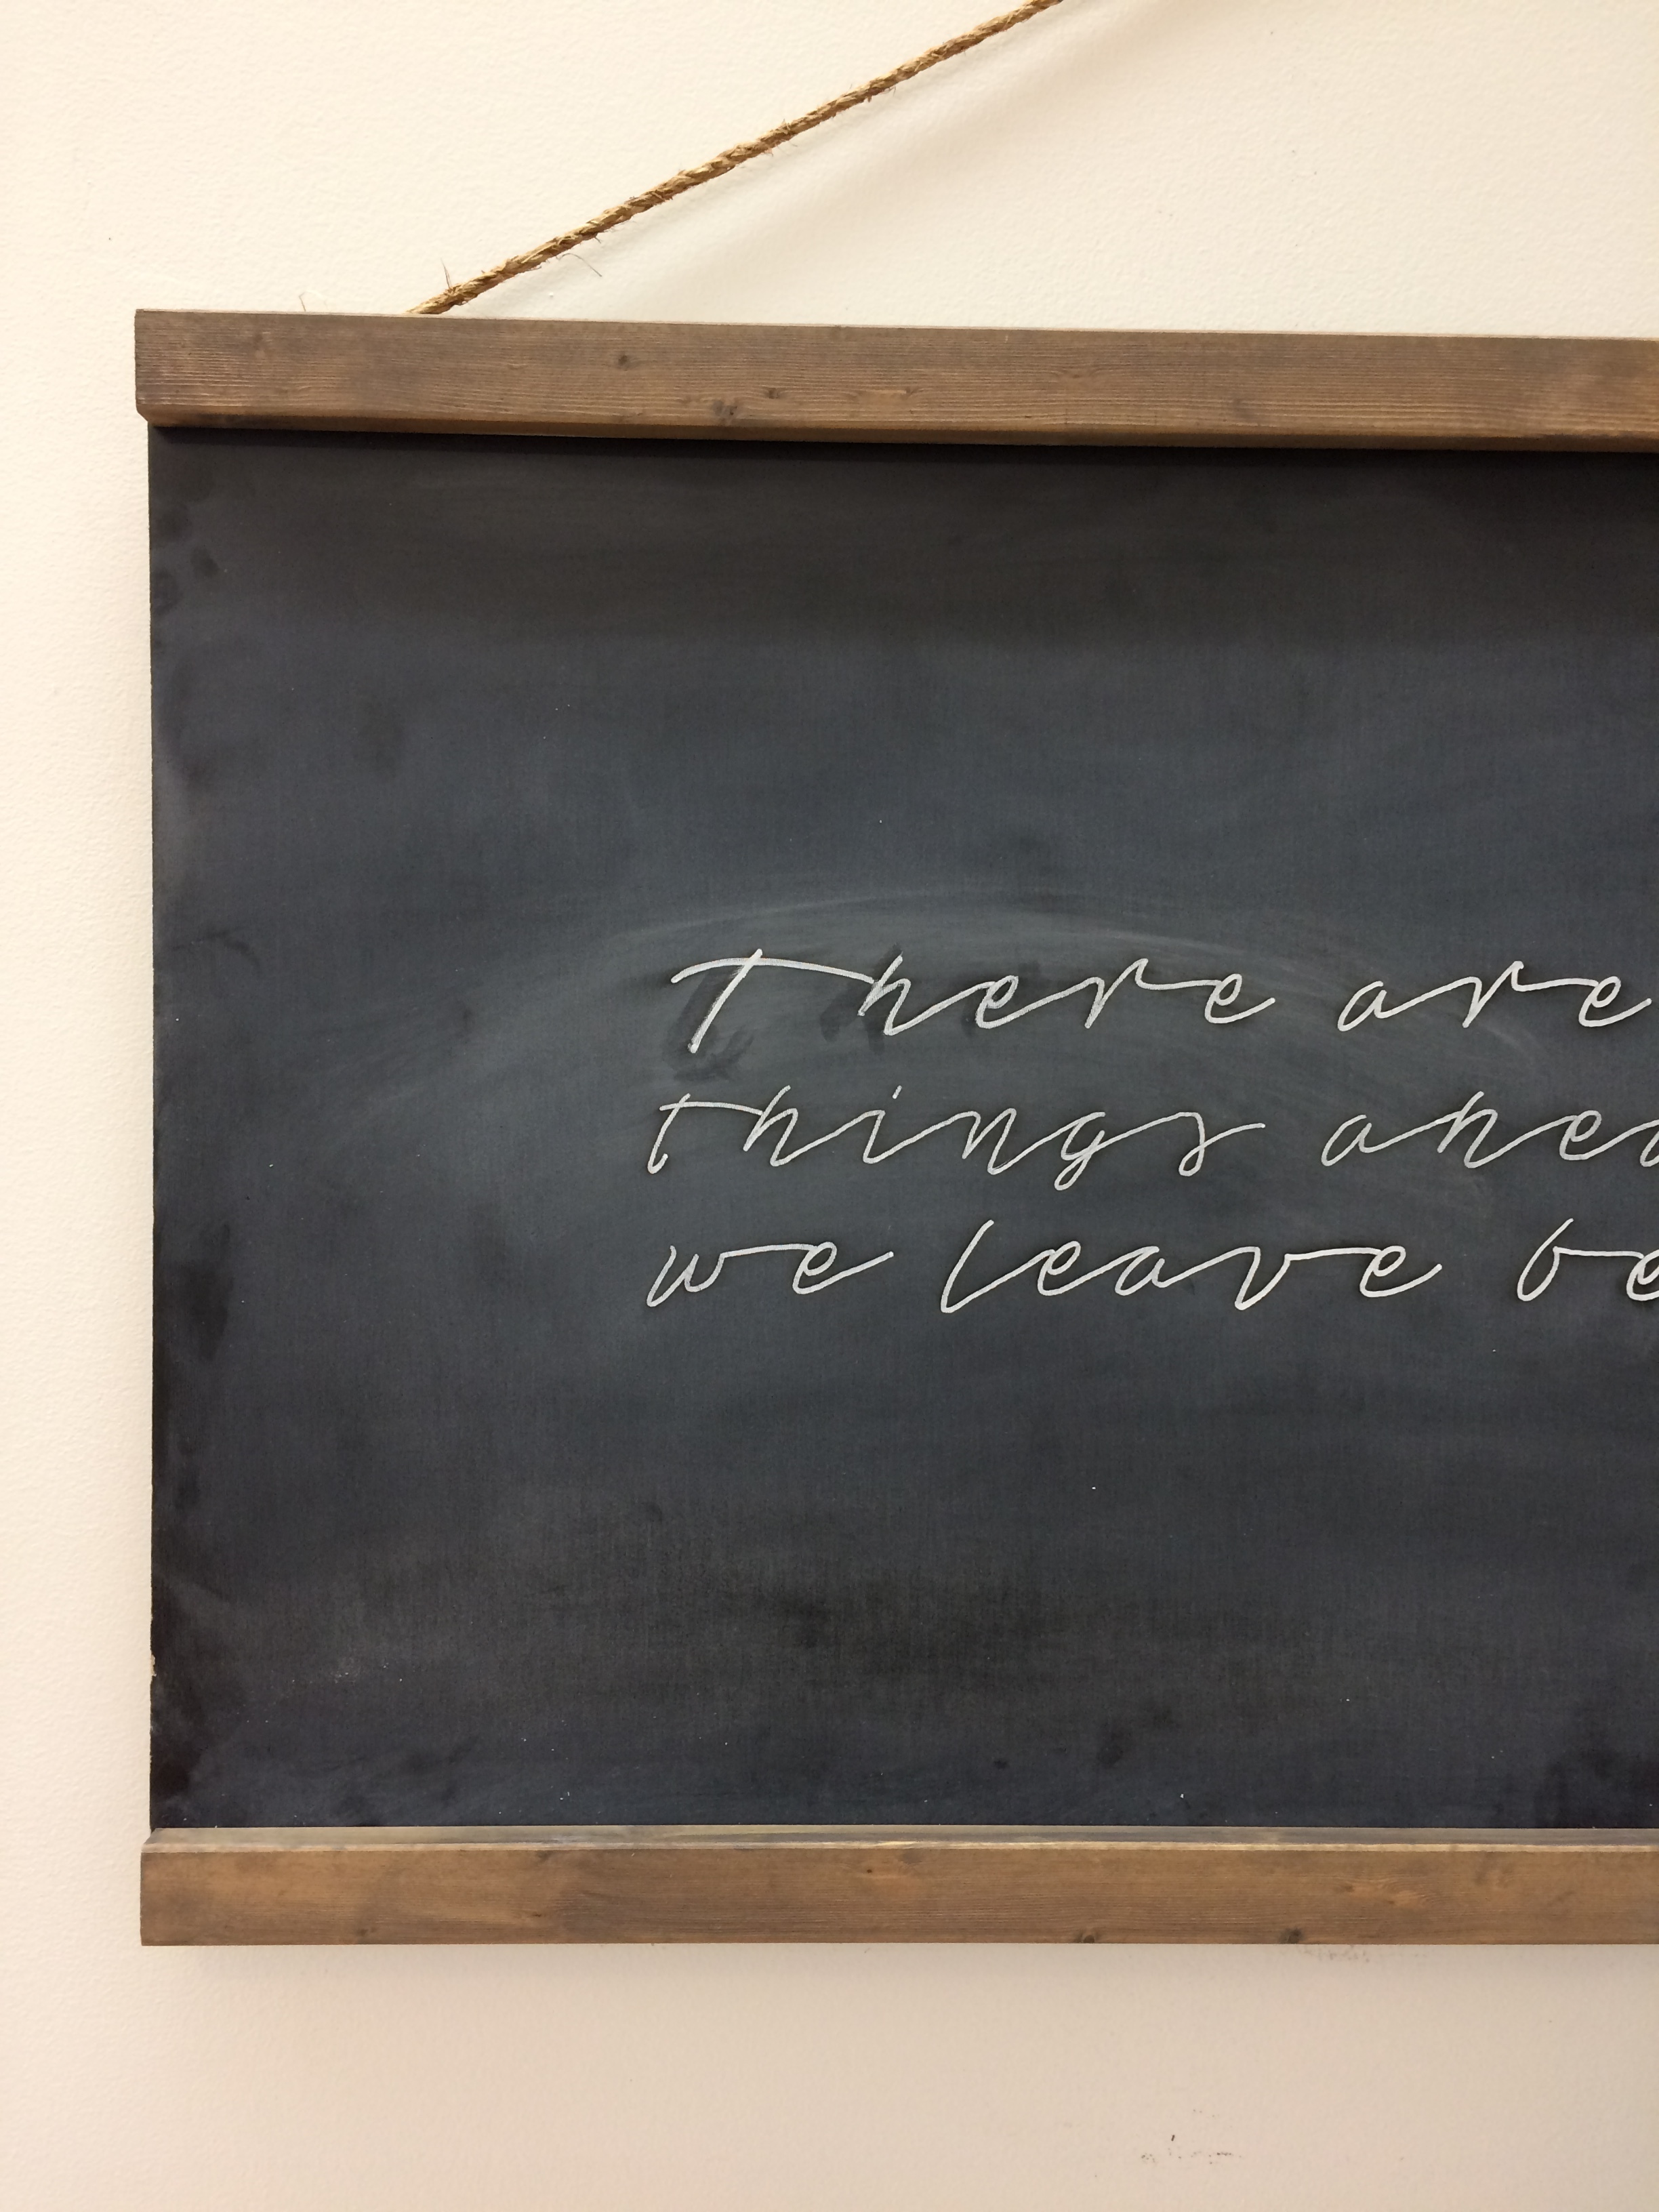 There are
things ahea
we leave be